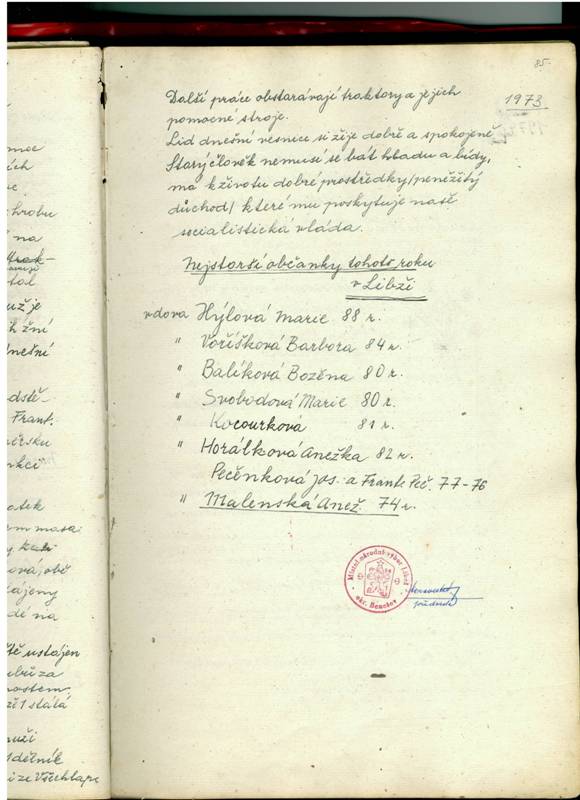 85.
1973
Další práce obstarávají traktory a jejich
pomocné stroje.
Lid dnešní vesnice si žije dobře a spokojeně
Starý člověk nemusí se bát hladu a bídy,
má k životu dobré prostředky/peněžitý
důchod/ které mu poskytuje naše
socialistická vláda.
Nejstarší občanky tohoto roku
v Libži
vdova Hýlová Marie 88 r.
" Voříšková Barbora 84 r.
" Balíková Božena 80 r.
" Svobodová Marie 80 r.
" Kocourková 81 r.
" Horálková Anežka 82 r.
Pečenková Jos. a Frant. Peč. 77-76
" Malenská Anež. 74 r.
Místní národní výbor Libež
okr. Benešov
předseda
moc
ích
hrobu
na
trak-
tal
už je
h žní
dnešní
dstě-
Frant.
nkci
atek
em masa
obě
dé na
ustájen
za
mostem,
stálá
muži
dělník
ze Všechlap